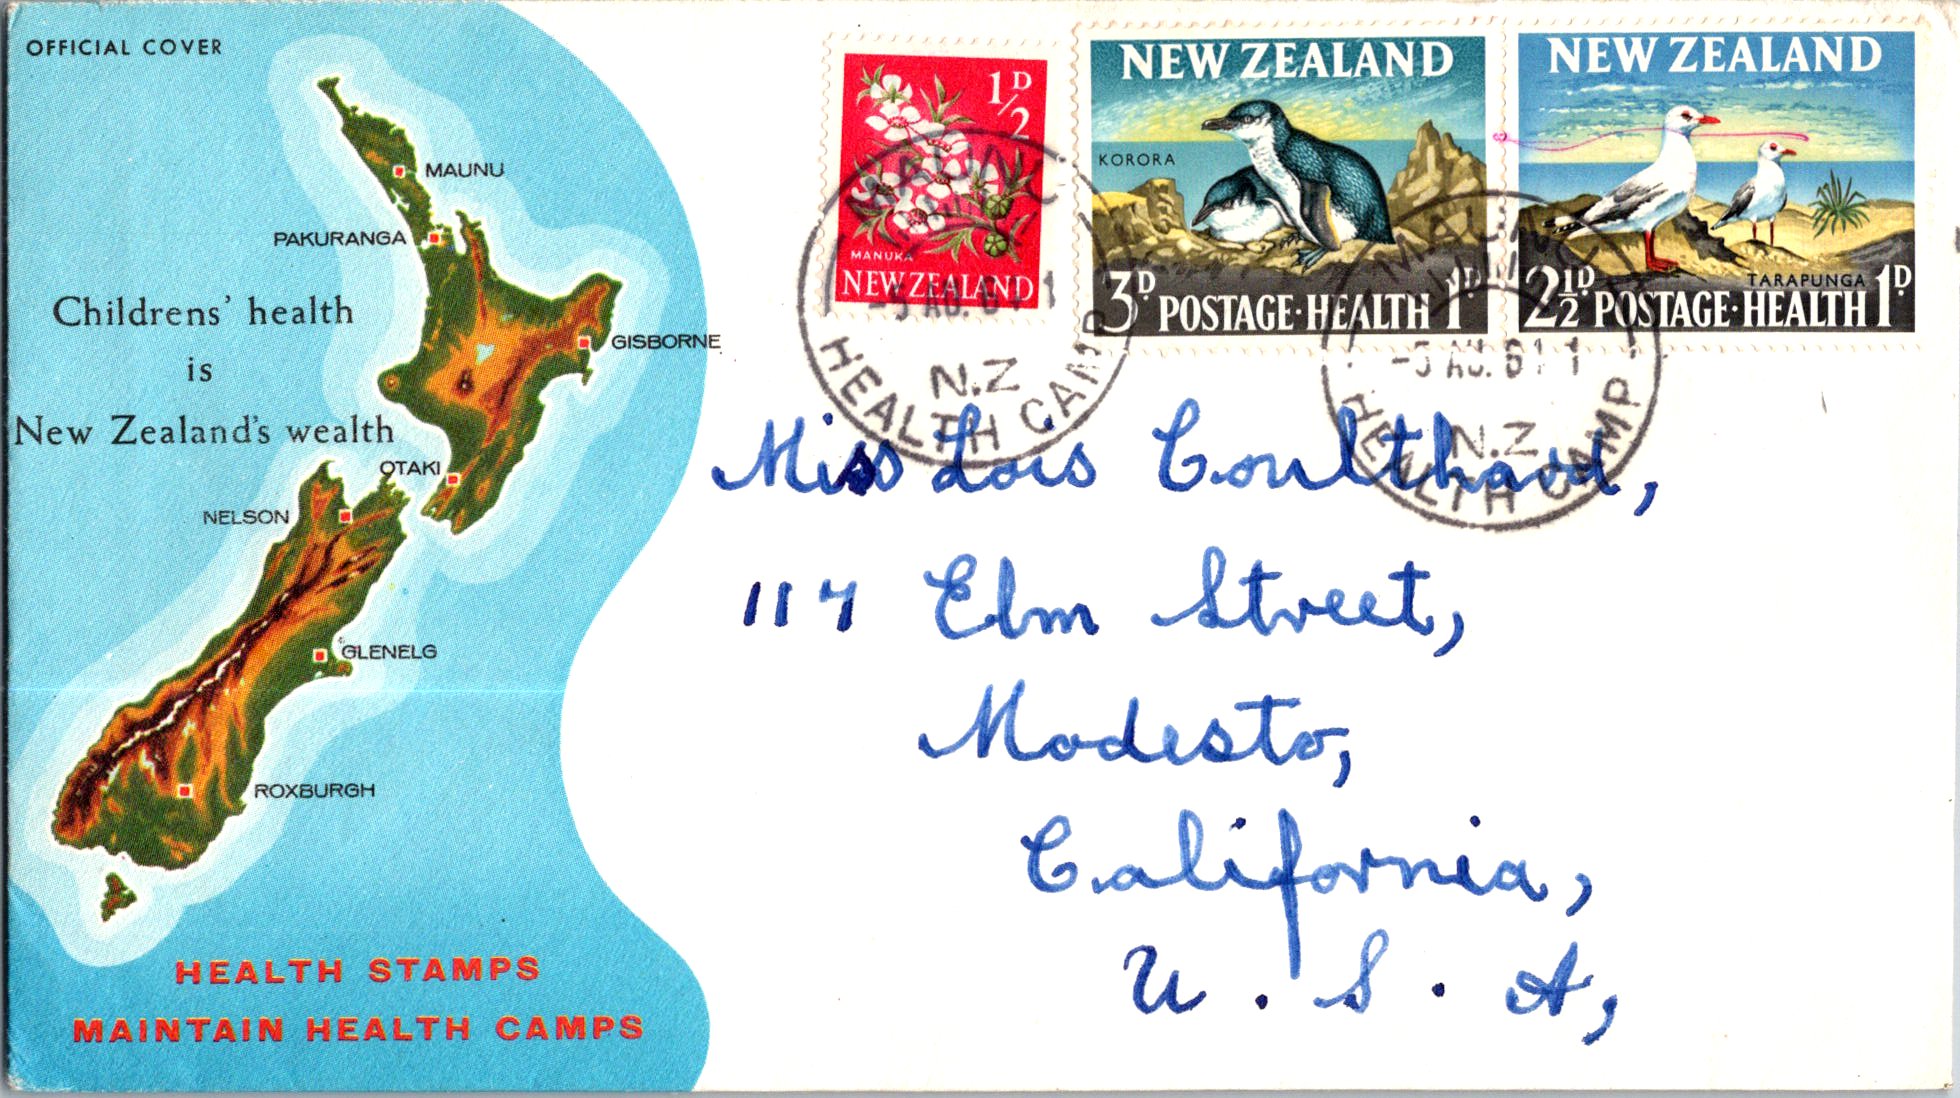 OFFICIAL COVER
MAUNU
PAKURANGA
Childrens' health
is
New Zealand's wealth
GISBORNE
OTAKI
NELSON
GLENELG
ROXBURGH
HEALTH STAMPS
MAINTAIN HEALTH CAMPS
1/2D
MANUKA
NEW ZEALAND
NEW ZEALAND
KORORA
3D POSTAGE·HEALTH 1D
NEW ZEALAND
TARAPUNGA
2½D POSTAGE·HEALTH 1D
MAUNU
-5 AU. 64 1
N.Z
HEALTH CAMP
MAUNU
-5 AU. 6 1
N.Z
HEALTH CAMP
Miss Lois Coulthard,
117 Elm Street,
Modesto,
California,
U. S. A,